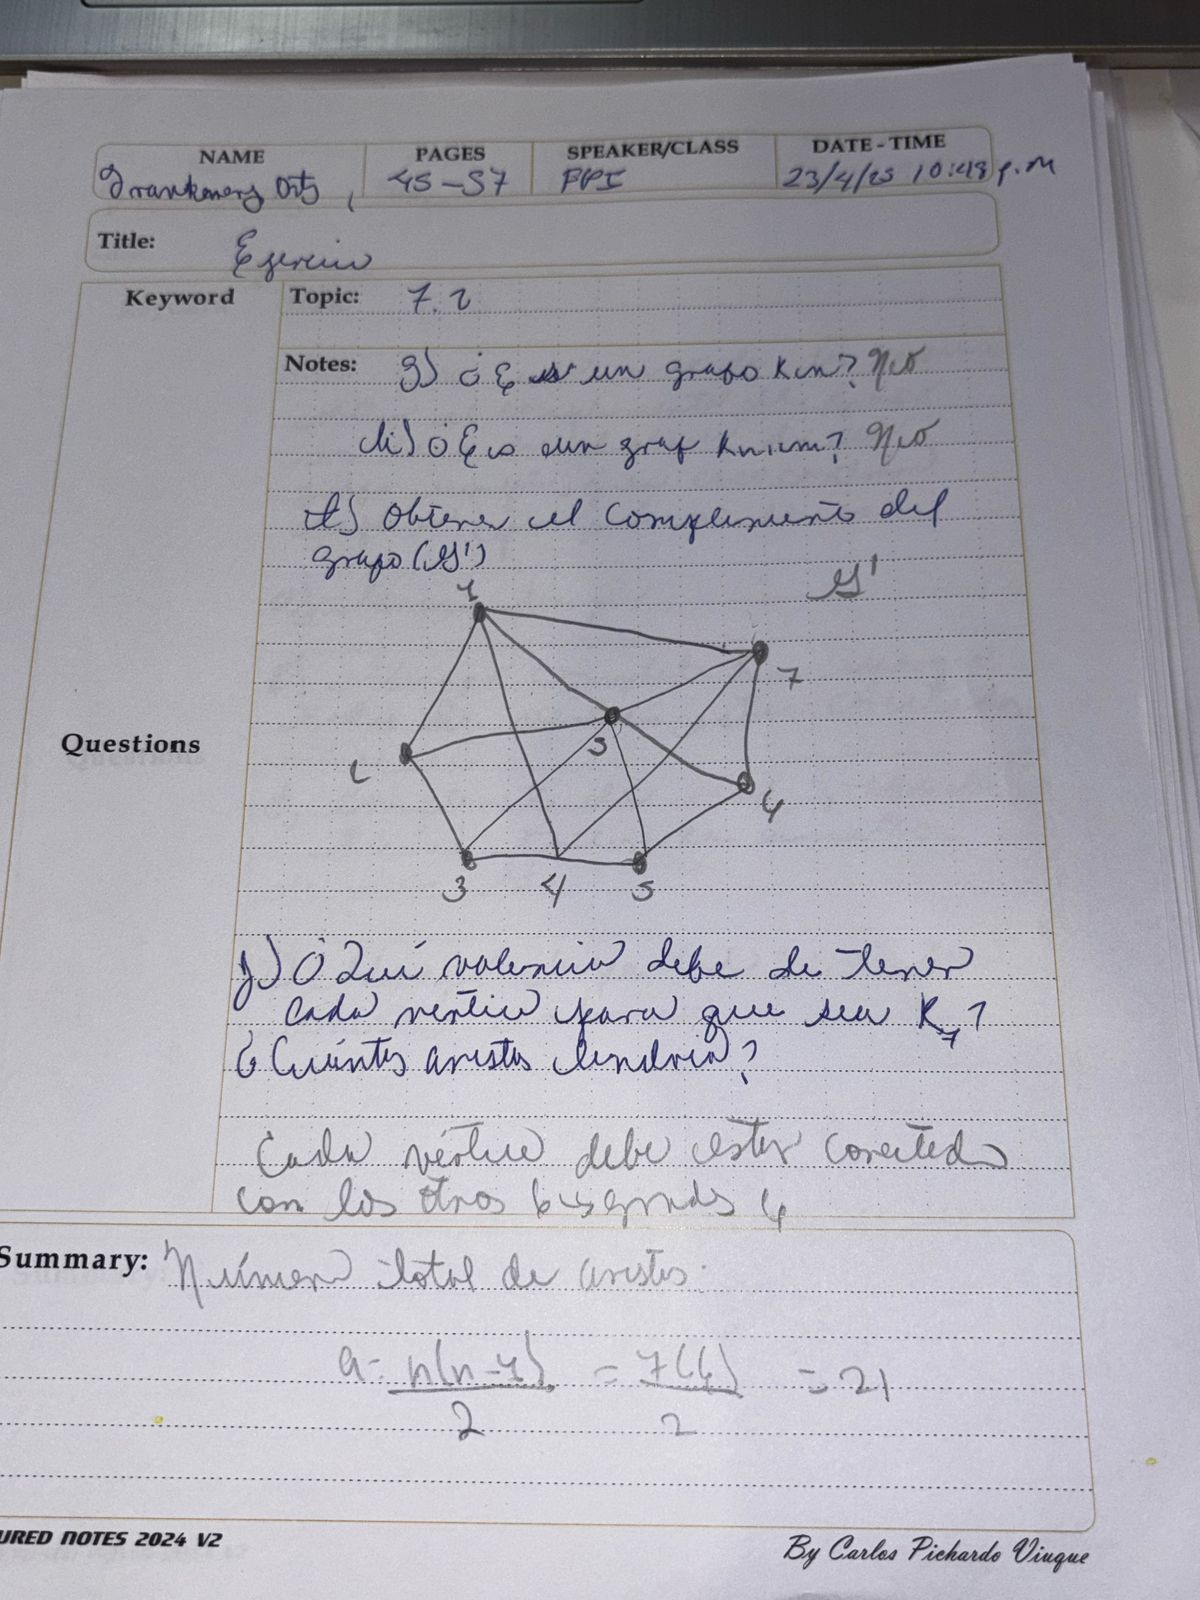 NAME PAGES SPEAKER/CLASS DATE - TIME
45-57 PPI 23/4/25 10:48 p.m
Title:
Keyword Topic: 7.2
Notes: g) ¿Es un grafo Kn? No
h) ¿Es un graf Kn,m? No
i) Obtener el complemento del
grafo (G')
G'
1
7
5
2
6
3 4 5
Questions
j) ¿Qué valencia debe de tener
cada vértice para que sea K7?
¿Cuántos aristas tendría?
Cada vértice debe estar conectado
con los otros 6
Summary: Número total de aristas:
a = n(n-1) = 7(6) = 21
2 2
URED NOTES 2024 V2 By Carlos Pichardo Viuque